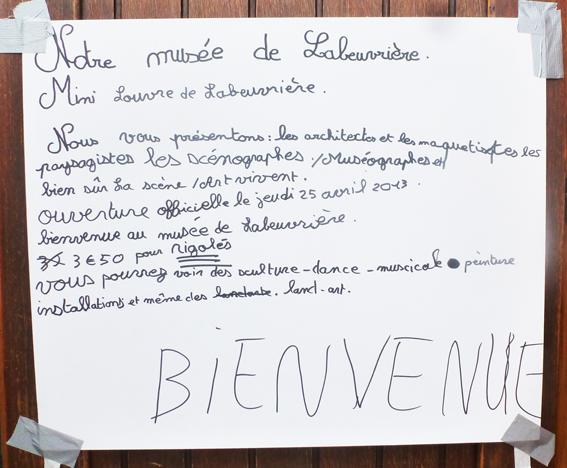 Notre musée de Labeuvrière.
Mini Louvre de Labeuvrière.
Nous vous présentons : les architectes et les maquetistes les
paysagistes les scénographes / Muséographes et
bien sûr La scène / Art vivent.
ouverture officielle le jeudi 25 avril 2013.
bienvenue au musée de Labeuvrière.
3€50 pour rigolés
vous pourrez voir des sculture - dance - musicale peinture
installations et même des land-art.
BiENVENUE